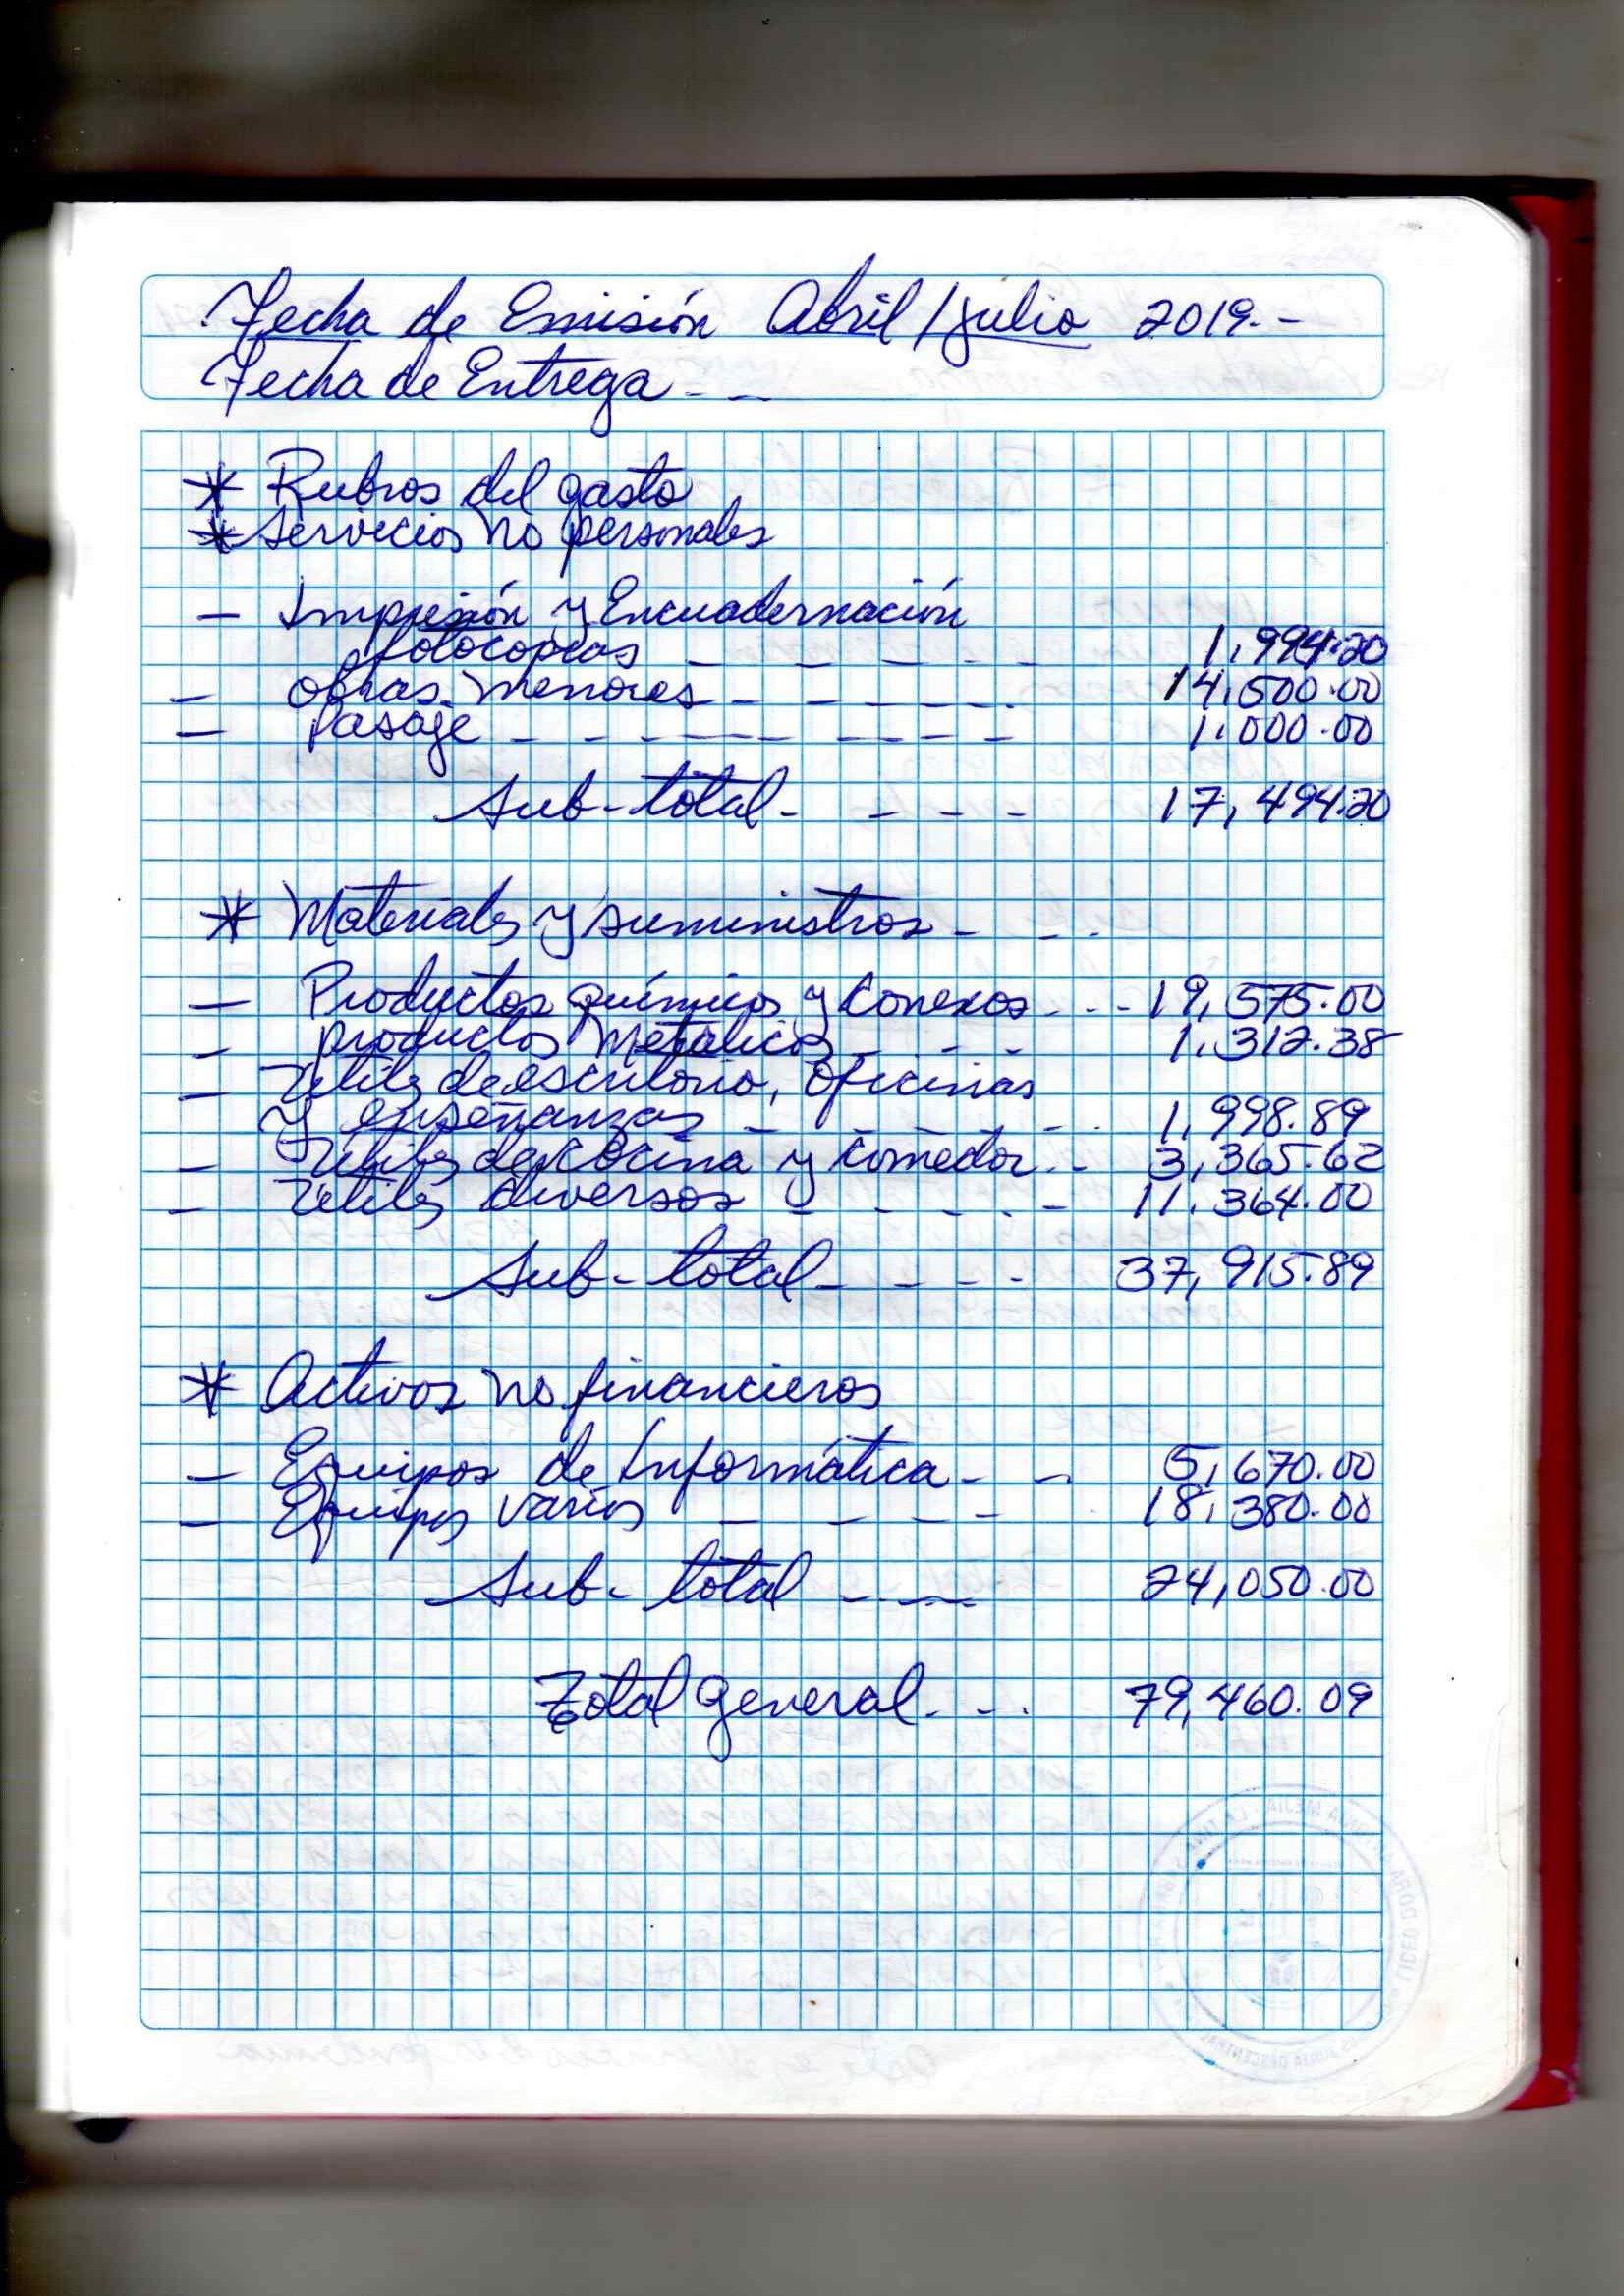 Fecha de Emisión Abril/julio 2019.-
Fecha de Entrega - -
* Rubros del gasto
* Servicios no personales
- Impresión y Encuadernación
fotocopias - - - - - - 1,994.20
- Obras menores - - - - - - 14,500.00
- Pasaje - - - - - - - - - 1,000.00
Sub-total - - - - 17,494.20
* Materiales y suministros - - -
- Productos químicos y Conexos - - - 19,575.00
- productos Metálicos - - - - 1,312.38
- Utiles de escritorio, Oficinas
y enseñanzas - - - - - 1,998.89
- Utiles de cocina y comedor - - 3,365.62
- Utiles diversos - - - - - 11,364.00
Sub-total - - - - 37,915.89
* Activos no financieros
- Equipos de Informática - - 5,670.00
- Equipos varios - - - - - 18,380.00
Sub-total - - - 24,050.00
Total general - - - 79,460.09